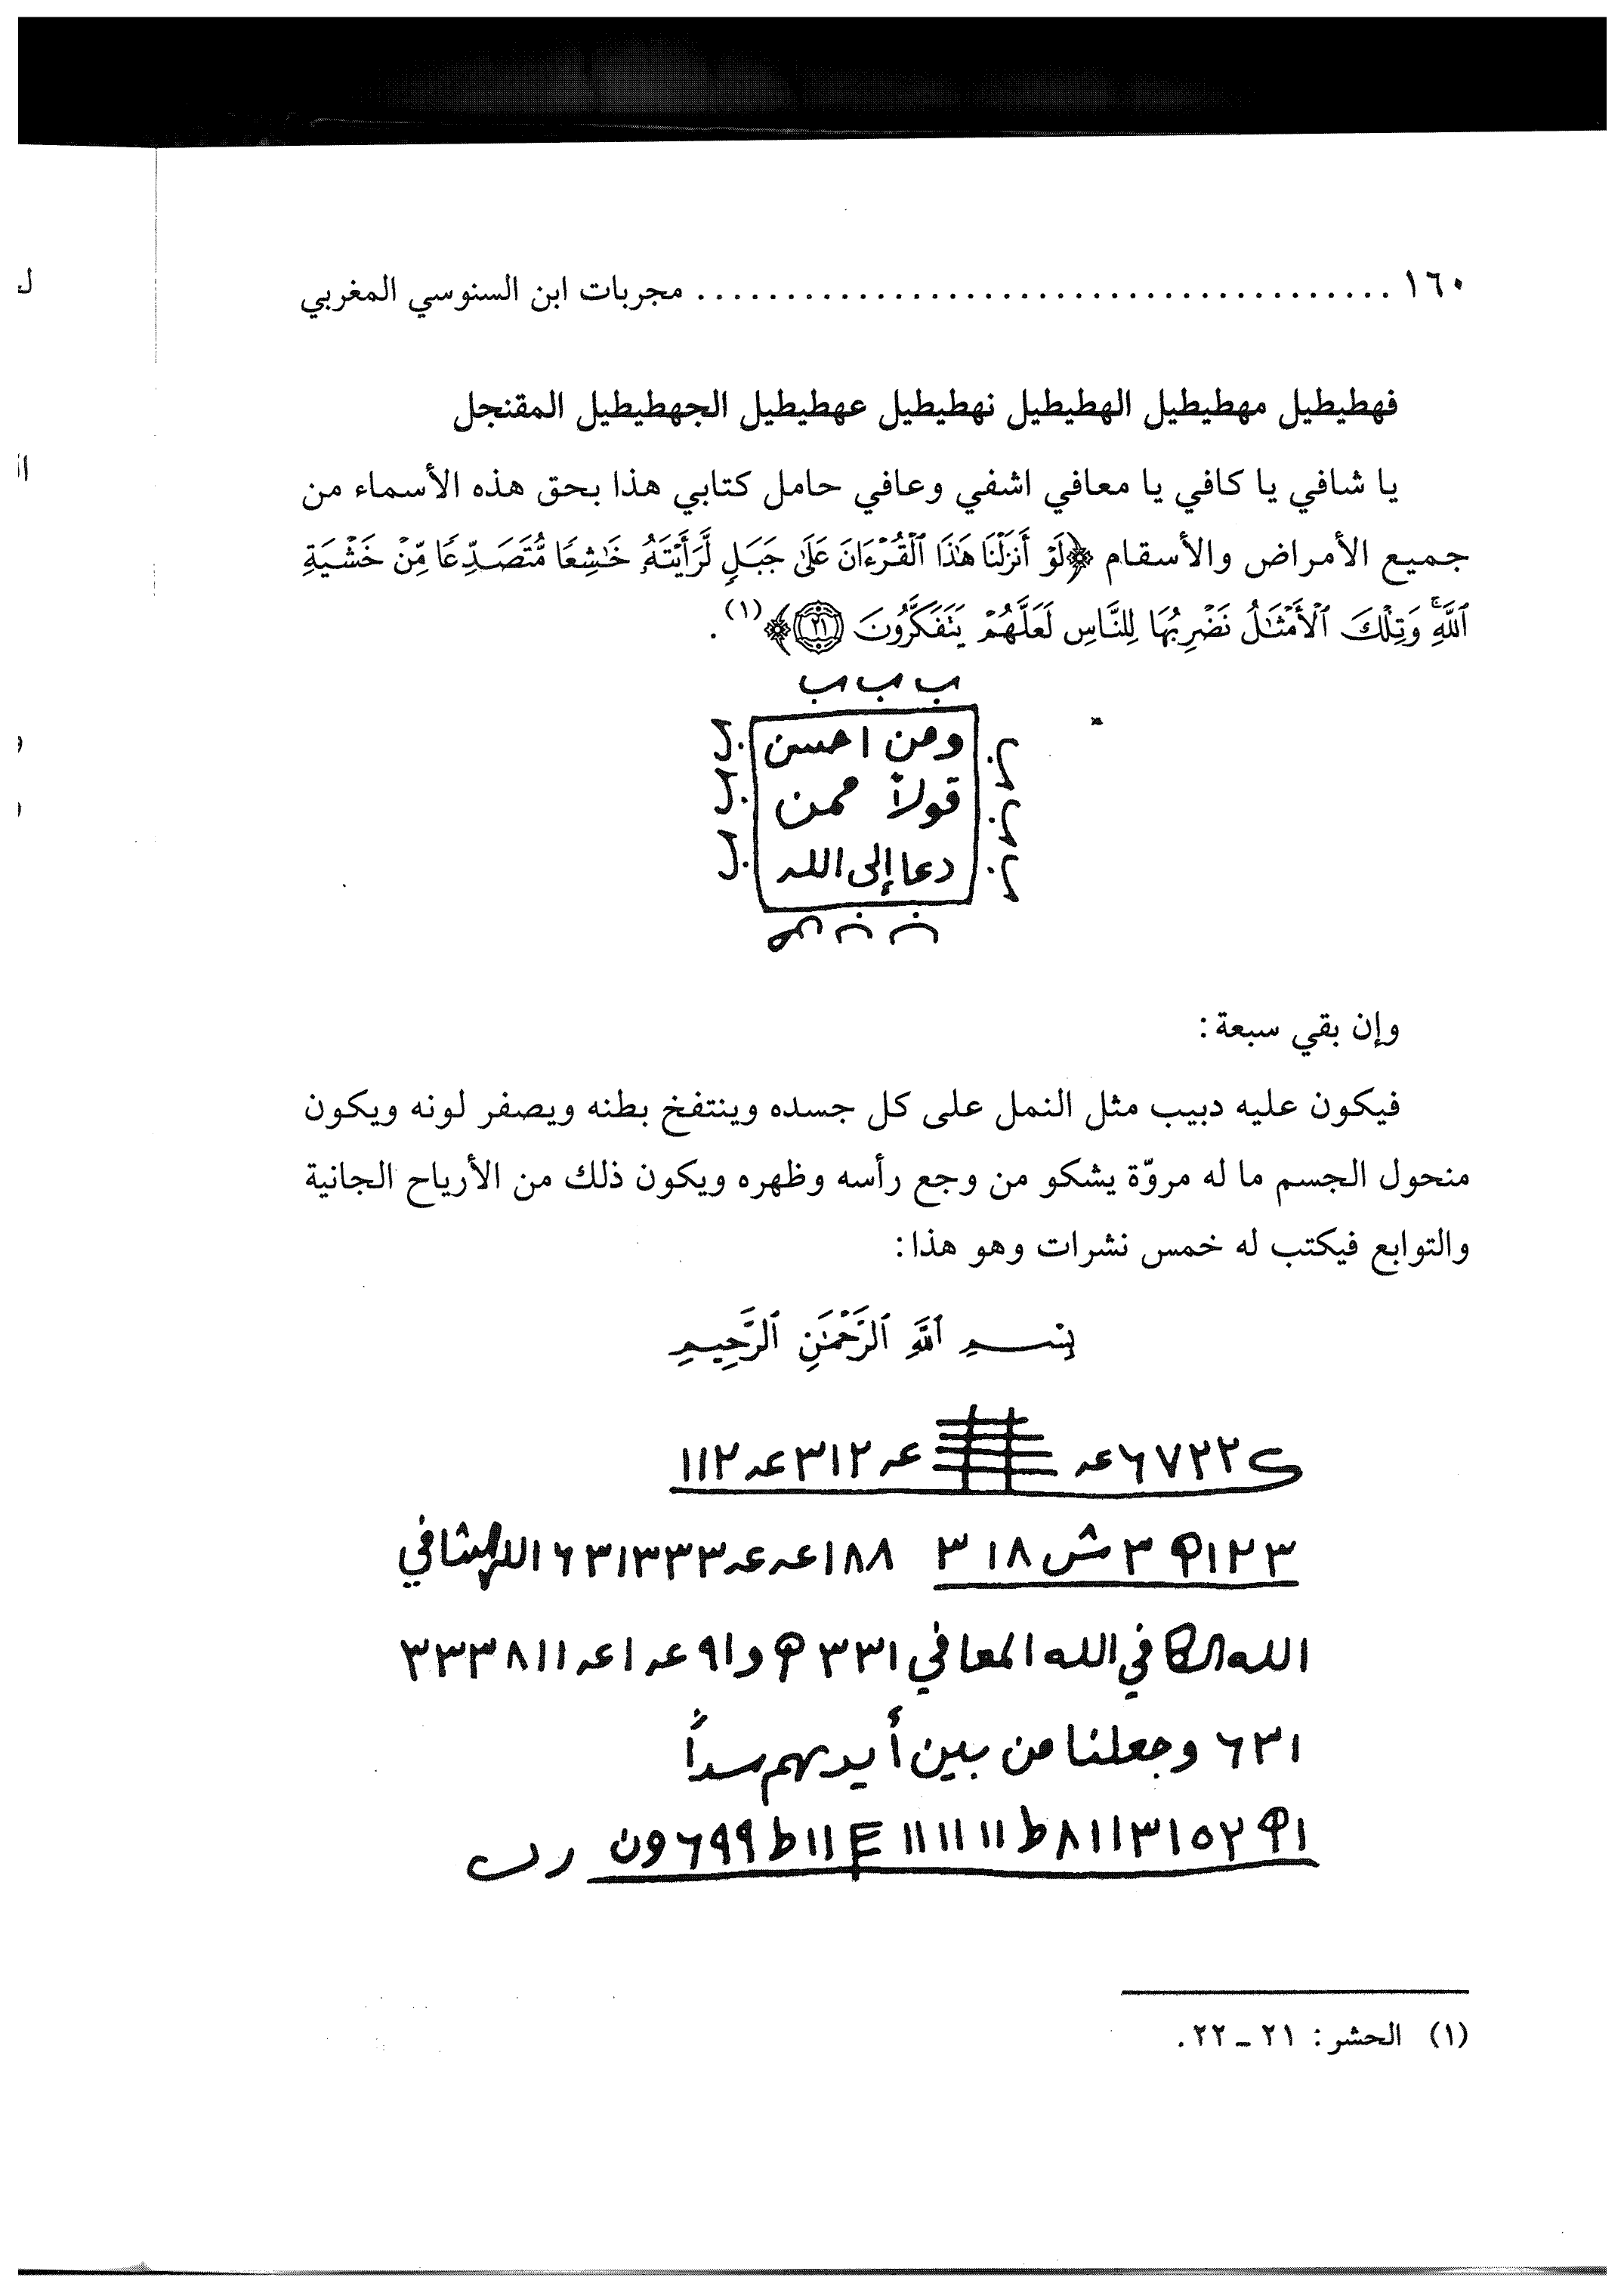 ١٦٠ ........................................ مجربات ابن السنوسي المغربي
فهطيطيل مهطيطيل الهطيطيل نهطيطيل عهطيطيل الجهطيطيل المقنجل
يا شافي يا كافي يا معافي اشفي وعافي حامل كتابي هذا بحق هذه الأسماء من
جميع الأمراض والأسقام ﴿لَوْ أَنزَلْنَا هَٰذَا ٱلْقُرْءَانَ عَلَىٰ جَبَلٍ لَّرَأَيْتَهُۥ خَٰشِعًا مُّتَصَدِّعًا مِّنْ خَشْيَةِ
ٱللَّهِ ۚ وَتِلْكَ ٱلْأَمْثَٰلُ نَضْرِبُهَا لِلنَّاسِ لَعَلَّهُمْ يَتَفَكَّرُونَ ٢١﴾(١).
ب ب ب
ومن احسن
قولاً ممن
دعا إلى الله
وإن بقي سبعة:
فيكون عليه دبيب مثل النمل على كل جسده وينتفخ بطنه ويصفر لونه ويكون
منحول الجسم ما له مروّة يشكو من وجع رأسه وظهره ويكون ذلك من الأرياح الجانية
والتوابع فيكتب له خمس نشرات وهو هذا:
بِسْمِ ٱللَّهِ ٱلرَّحْمَٰنِ ٱلرَّحِيمِ
الله الشافي
الله الكافي الله المعافي
٦٣١ وجعلنا من بين أيديهم سداً
(١) الحشر: ٢١ ـ ٢٢.